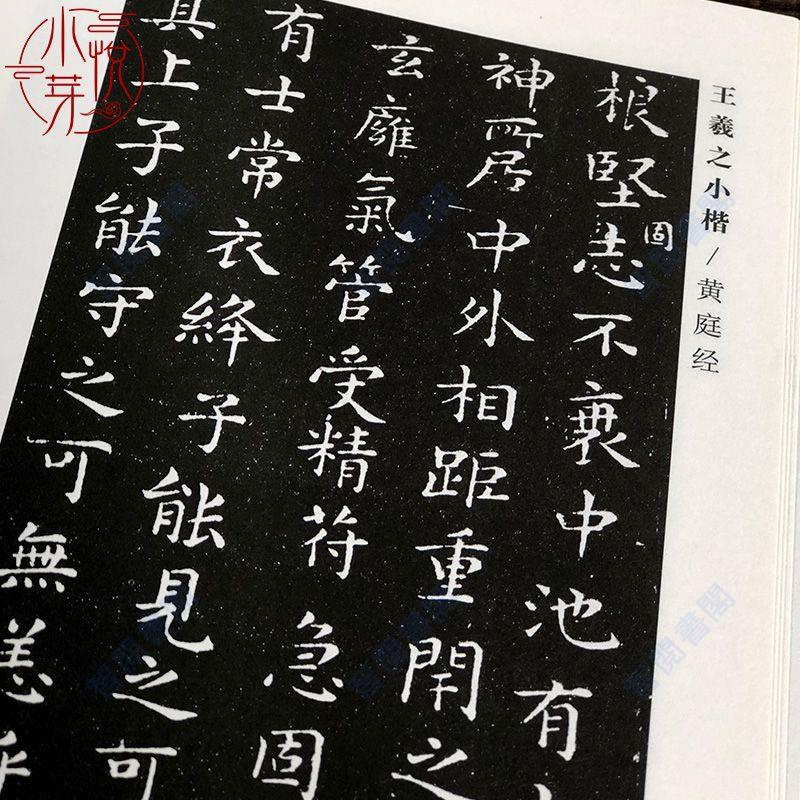 王羲之小楷 / 黄庭经
根堅固志不衰中池有
神所居中外相距重閇之
玄廱氣管受精苻急固
有士常衣絳子能見之可
其上子能守之可
無恙
小芽悦
閱書閣